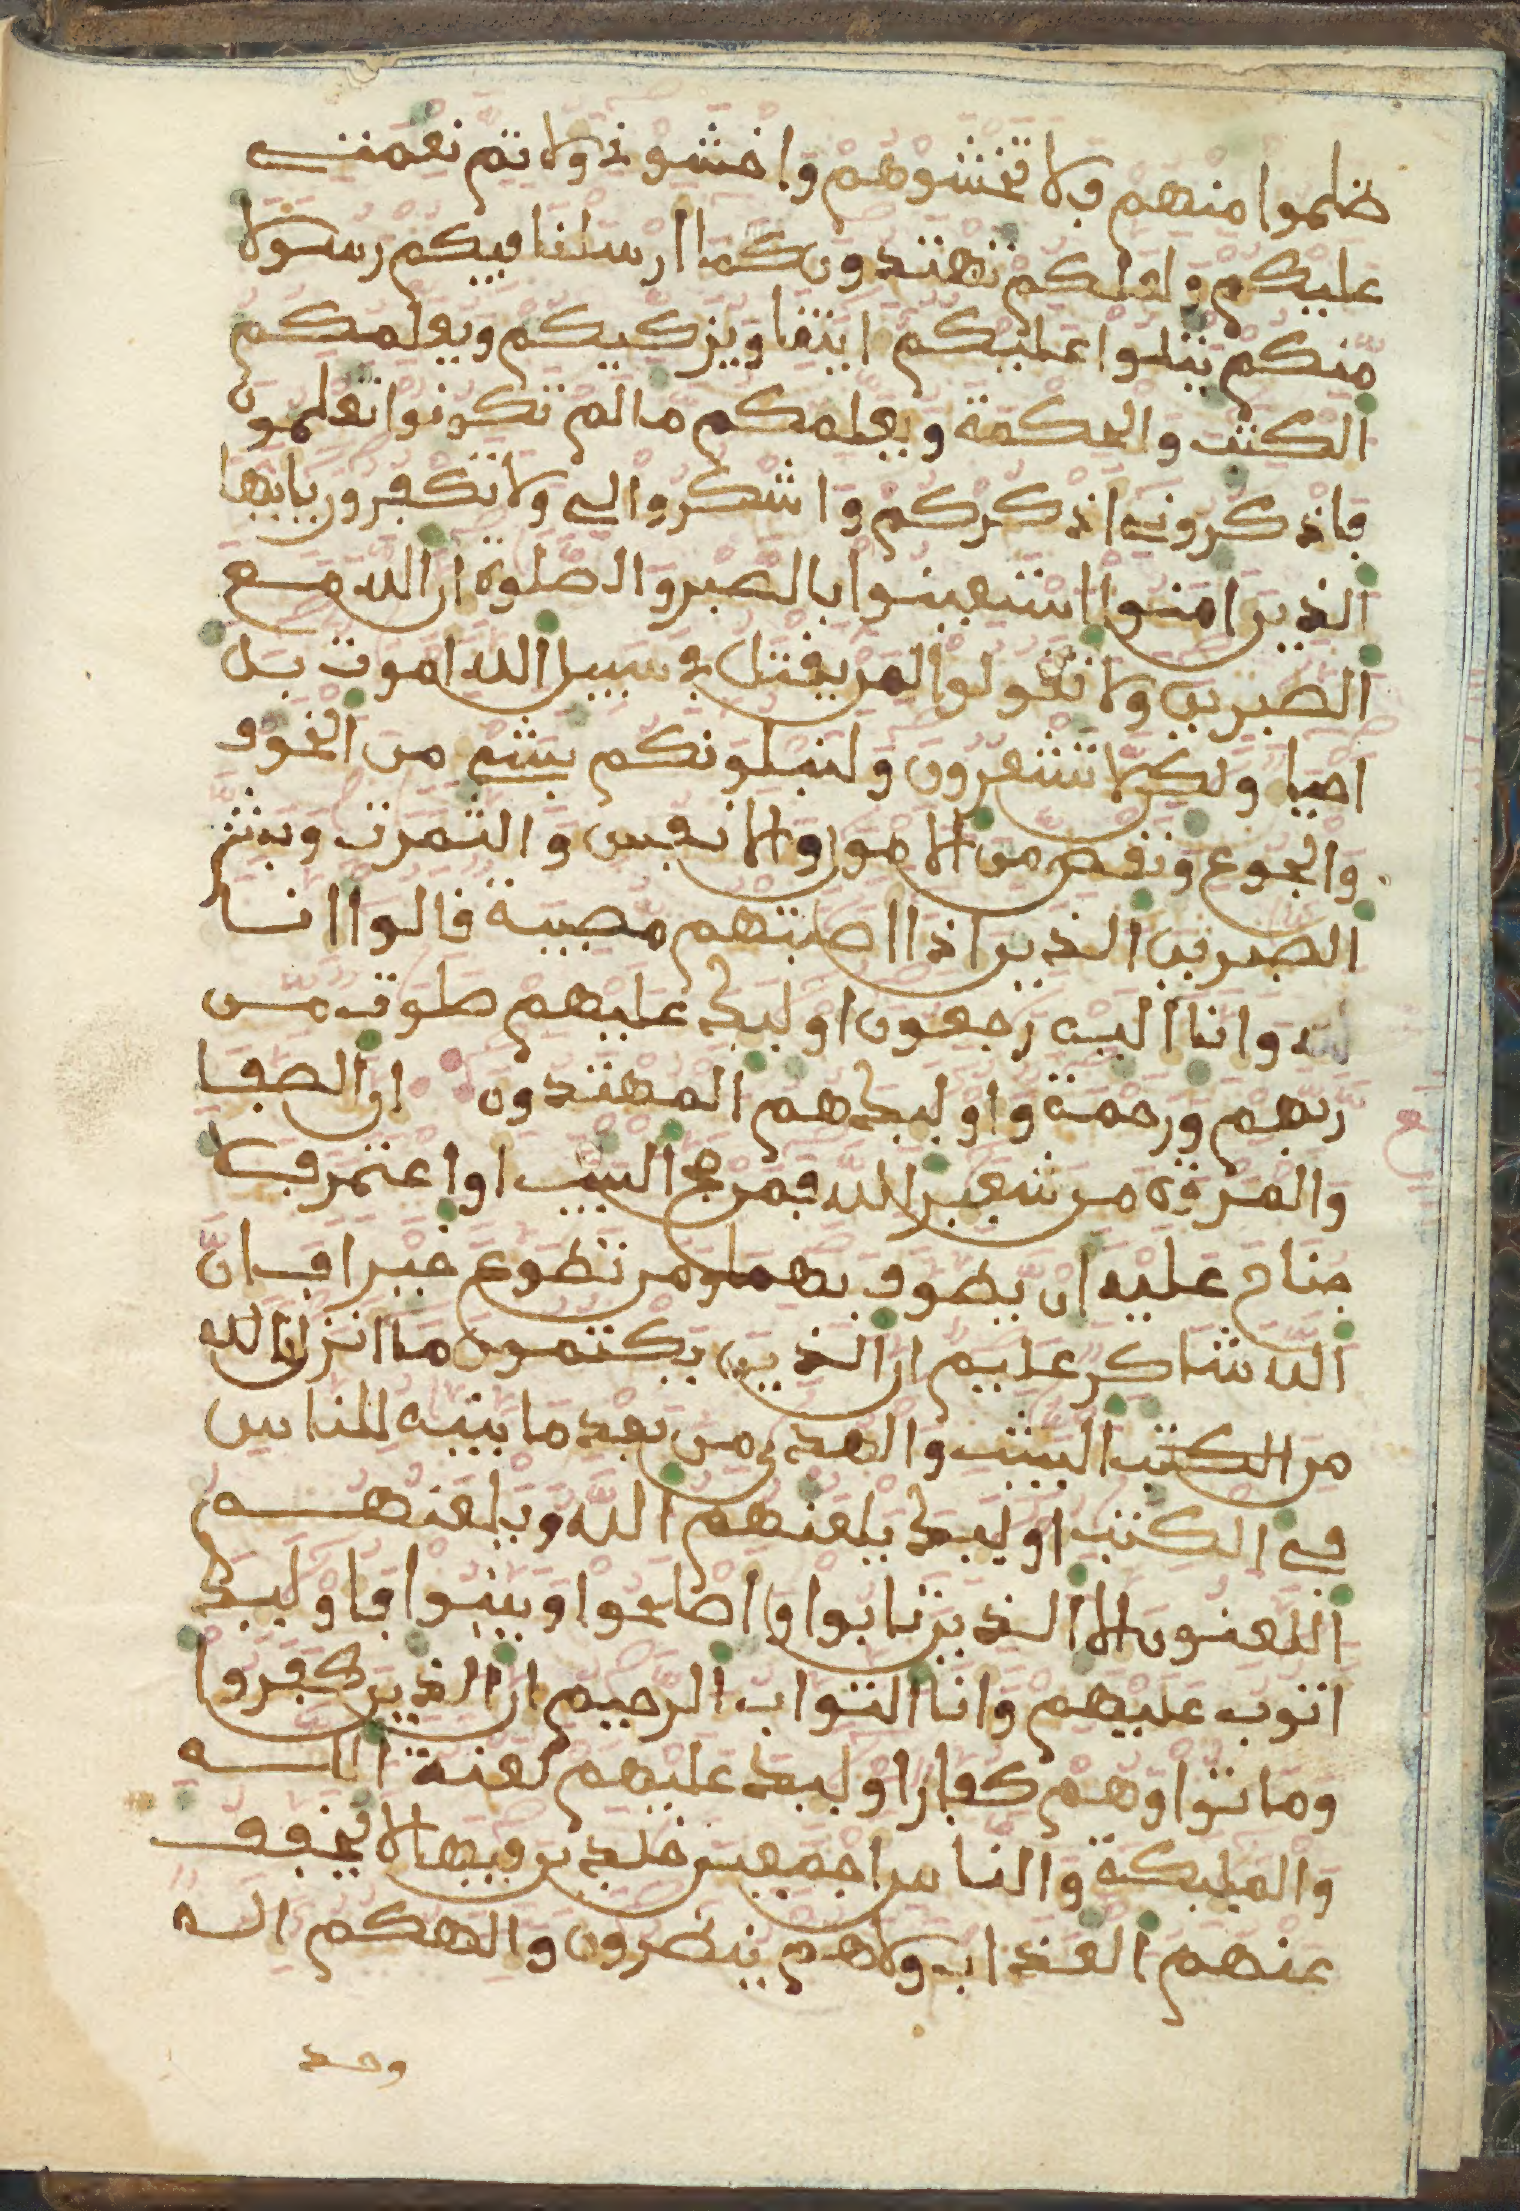 ظلموا منهم ڢلا تخشوهم واخشونے ولاتم نعمتے
عليكم ولعلكم تهتدون كما ارسلنا ڢيكم رسولا
منكم يتلوا عليكم ايتنا ويزكيكم ويعلمكم
الكتب والحكمة ويعلمكم ما لم تكونوا تعلمون
ڢاذكرونے اذكركم واشكروا لے ولا تكڢرون يايها
الذين امنوا استعينوا بالصبر والصلوة ان الله مع
الصبرين ولا تڧولوا لمن يڧتل ڢے سبيل الله اموت بل
احيا ولكن لا تشعرون ولنبلونكم بشے من الخوڢ
والجوع ونڧص من الامول والانڢس والثمرت وبشر
الصبرين الذين اذا اصبتهم مصيبة ڧالوا انا
لله وانا اليه رجعون اوليك عليهم صلوت من
ربهم ورحمة واوليك هم المهتدون ان الصڢا
والمروة من شعير الله ڢمن حج البيت او اعتمر ڢلا
جناح عليه ان يطوڢ بهما ومن تطوع خيرا ڢان
الله شاكر عليم ان الذين يكتمون ما انزلنا الله
من الكتب البينت والهدى من بعد ما بينه للناس
ڢے الكتب اوليك يلعنهم الله ويلعنهم
اللعنون الا الذين تابوا واصلحوا وبينوا ڢاوليك
اتوب عليهم وانا التواب الرحيم ان الذين كڢروا
وماتوا وهم كڢار اوليك عليهم لعنة الله
والمليكة والناس اجمعين خلدين ڢيها لا يخڢڢ
عنهم العذاب ولا هم ينظرون والهكم اله
وحد
ع